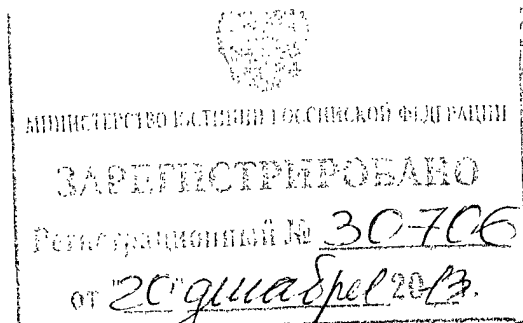 МИНИСТЕРСТВО ЮСТИЦИИ РОССИЙСКОЙ ФЕДЕРАЦИИ
ЗАРЕГИСТРИРОВАНО
Регистрационный № 30706
от "20" декабря 2013.